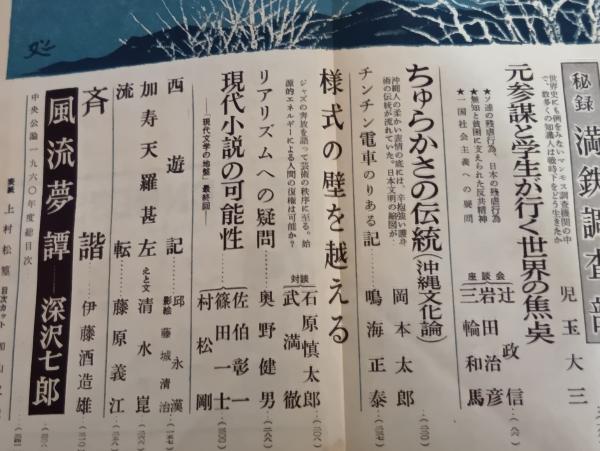 秘録 満鉄調査部
世界史にも例をみないマンモス調査機関の中
で、数多くの知識人は戦時下をどう生きたか
児玉大三
元参謀と学生が行く世界の焦点
★ソ連の残虐行為、日本の残虐行為
★無知と貧困に支えられた反共精神
★一国社会主義への疑問
座談会
辻政信
岩田治彦
三輪和馬
ちゅらかさの伝統(沖縄文化論)
沖縄人の柔かい表情の底には、辛抱強い譲斗
術の伝統が流れていた。日本文明の縮図が
岡本太郎
チンチン電車のりある記
鳴海正泰
様式の壁を越える
ジャズの奔放を語って芸術の秩序に至る。始
源的エネルギーによる人間の復権は可能か?
対談
石原慎太郎
武満徹
リアリズムへの疑問
奥野健男
現代小説の可能性
―「現代文学の地盤」最終回
佐伯彰一
篠田一士
村松剛
西遊記
邱永漢
影絵 藤城清治
加寿天羅甚左
えと文 清水崑
流転
藤原義江
斉諧
伊藤酒造雄
風流夢譚
深沢七郎
中央公論一九六〇年度総目次
表紙 上村松篁
目次カット